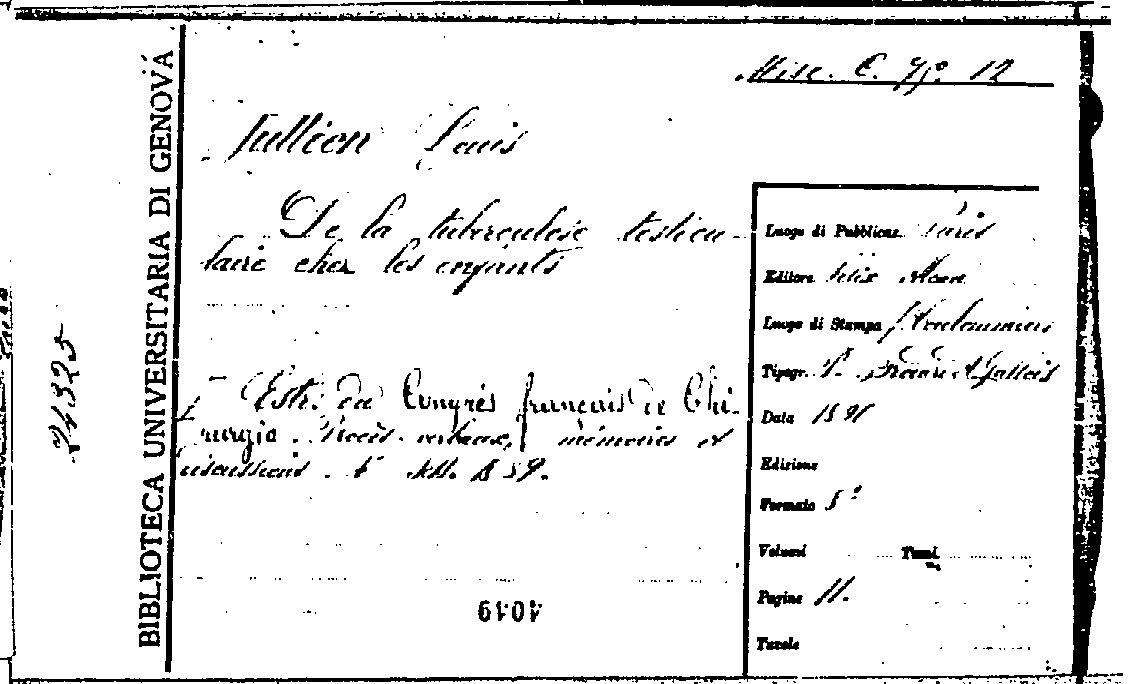 BIBLIOTECA UNIVERSITARIA DI GENOVA
24325
Misc. C. 12
Jullien Louis
De la tuberculose testicu-
laire chez les enfants
Estr. du Congrès français de Chi-
rurgie. Procès-verbaux, mémoires et
discussions. 1889.
4049
Luogo di Pubblicaz. Paris
Editore Félix Alcan
Luogo di Stampa Coulommiers
Tipogr. P. Brodard & Gallois
Data
Edizione
Formato 8°
Volumi Tomi
Pagine 11.
Tavole